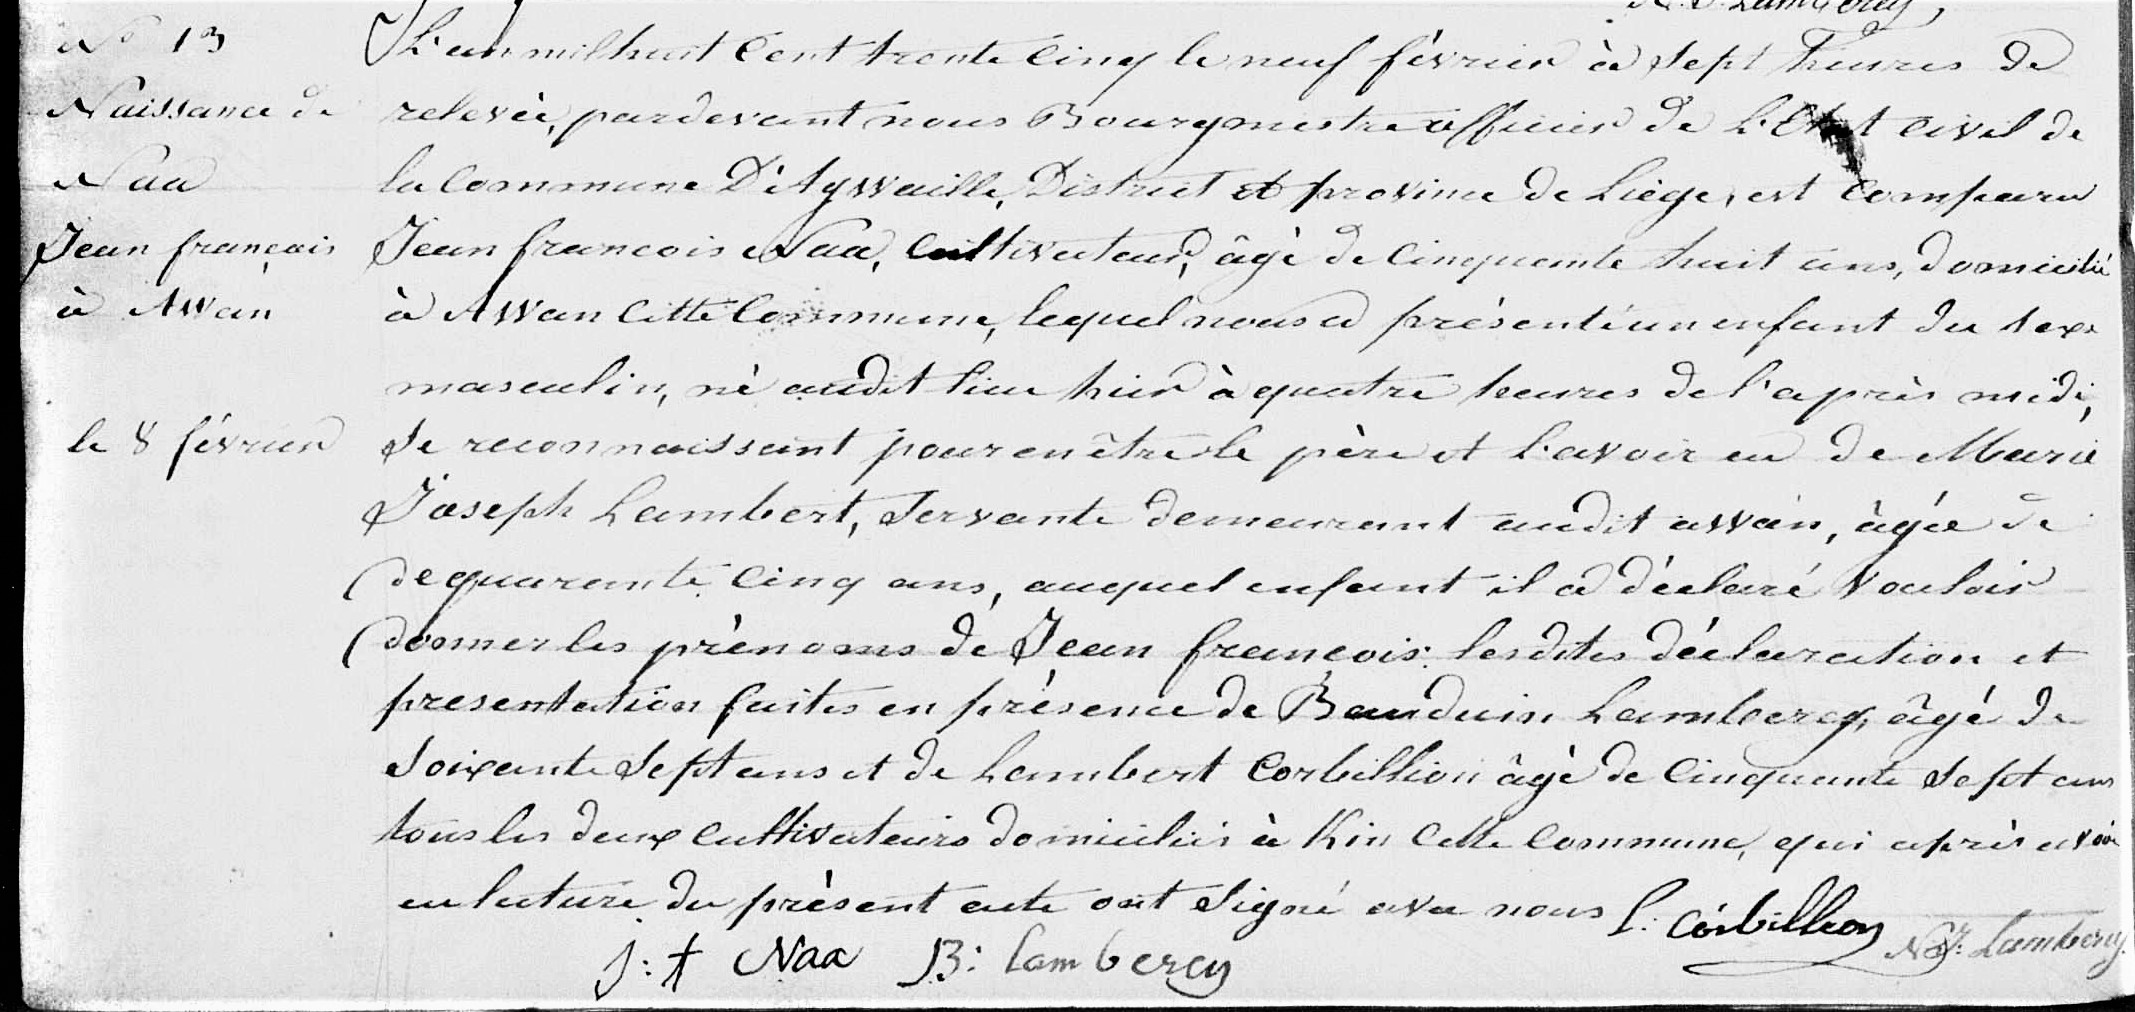 N° 13
Naissance de
Naa
Jean françois
à Awan
le 8 février
L'an mil huit cent trente cinq le neuf février à sept heures de
relevée, pardevant nous Bourgmestre officier de L'Etat civil de
la commune D'Aywaille, District et province de Liège, est comparu
Jean francois Naa, cultivateur, âgé de cinquante huit ans, domicilié
à Awan cette commune, lequel nous a présenté un enfant du sexe
masculin, né audit lieu hier à quatre heures de l'après midi,
se reconnaissant pour en être le père et l'avoir eu de Marie
Joseph Lambert, servante demeurant audit awan, âgée de
de quarante cinq ans, auquel enfant il a déclaré vouloir
donner les prénoms de Jean françois: lesdites déclaration et
presentation faites en présence de Bauduin Lambercy, âgé de
soixante sept ans et de Lambert Corbillion âgé de cinquante sept ans
tous les deux cultivateurs domiciliés à Kin cette commune, qui après avoir
eu lecture du présent acte ont signé avec nous L: Corbillion
j: f Naa B: Lambercy Lambercy